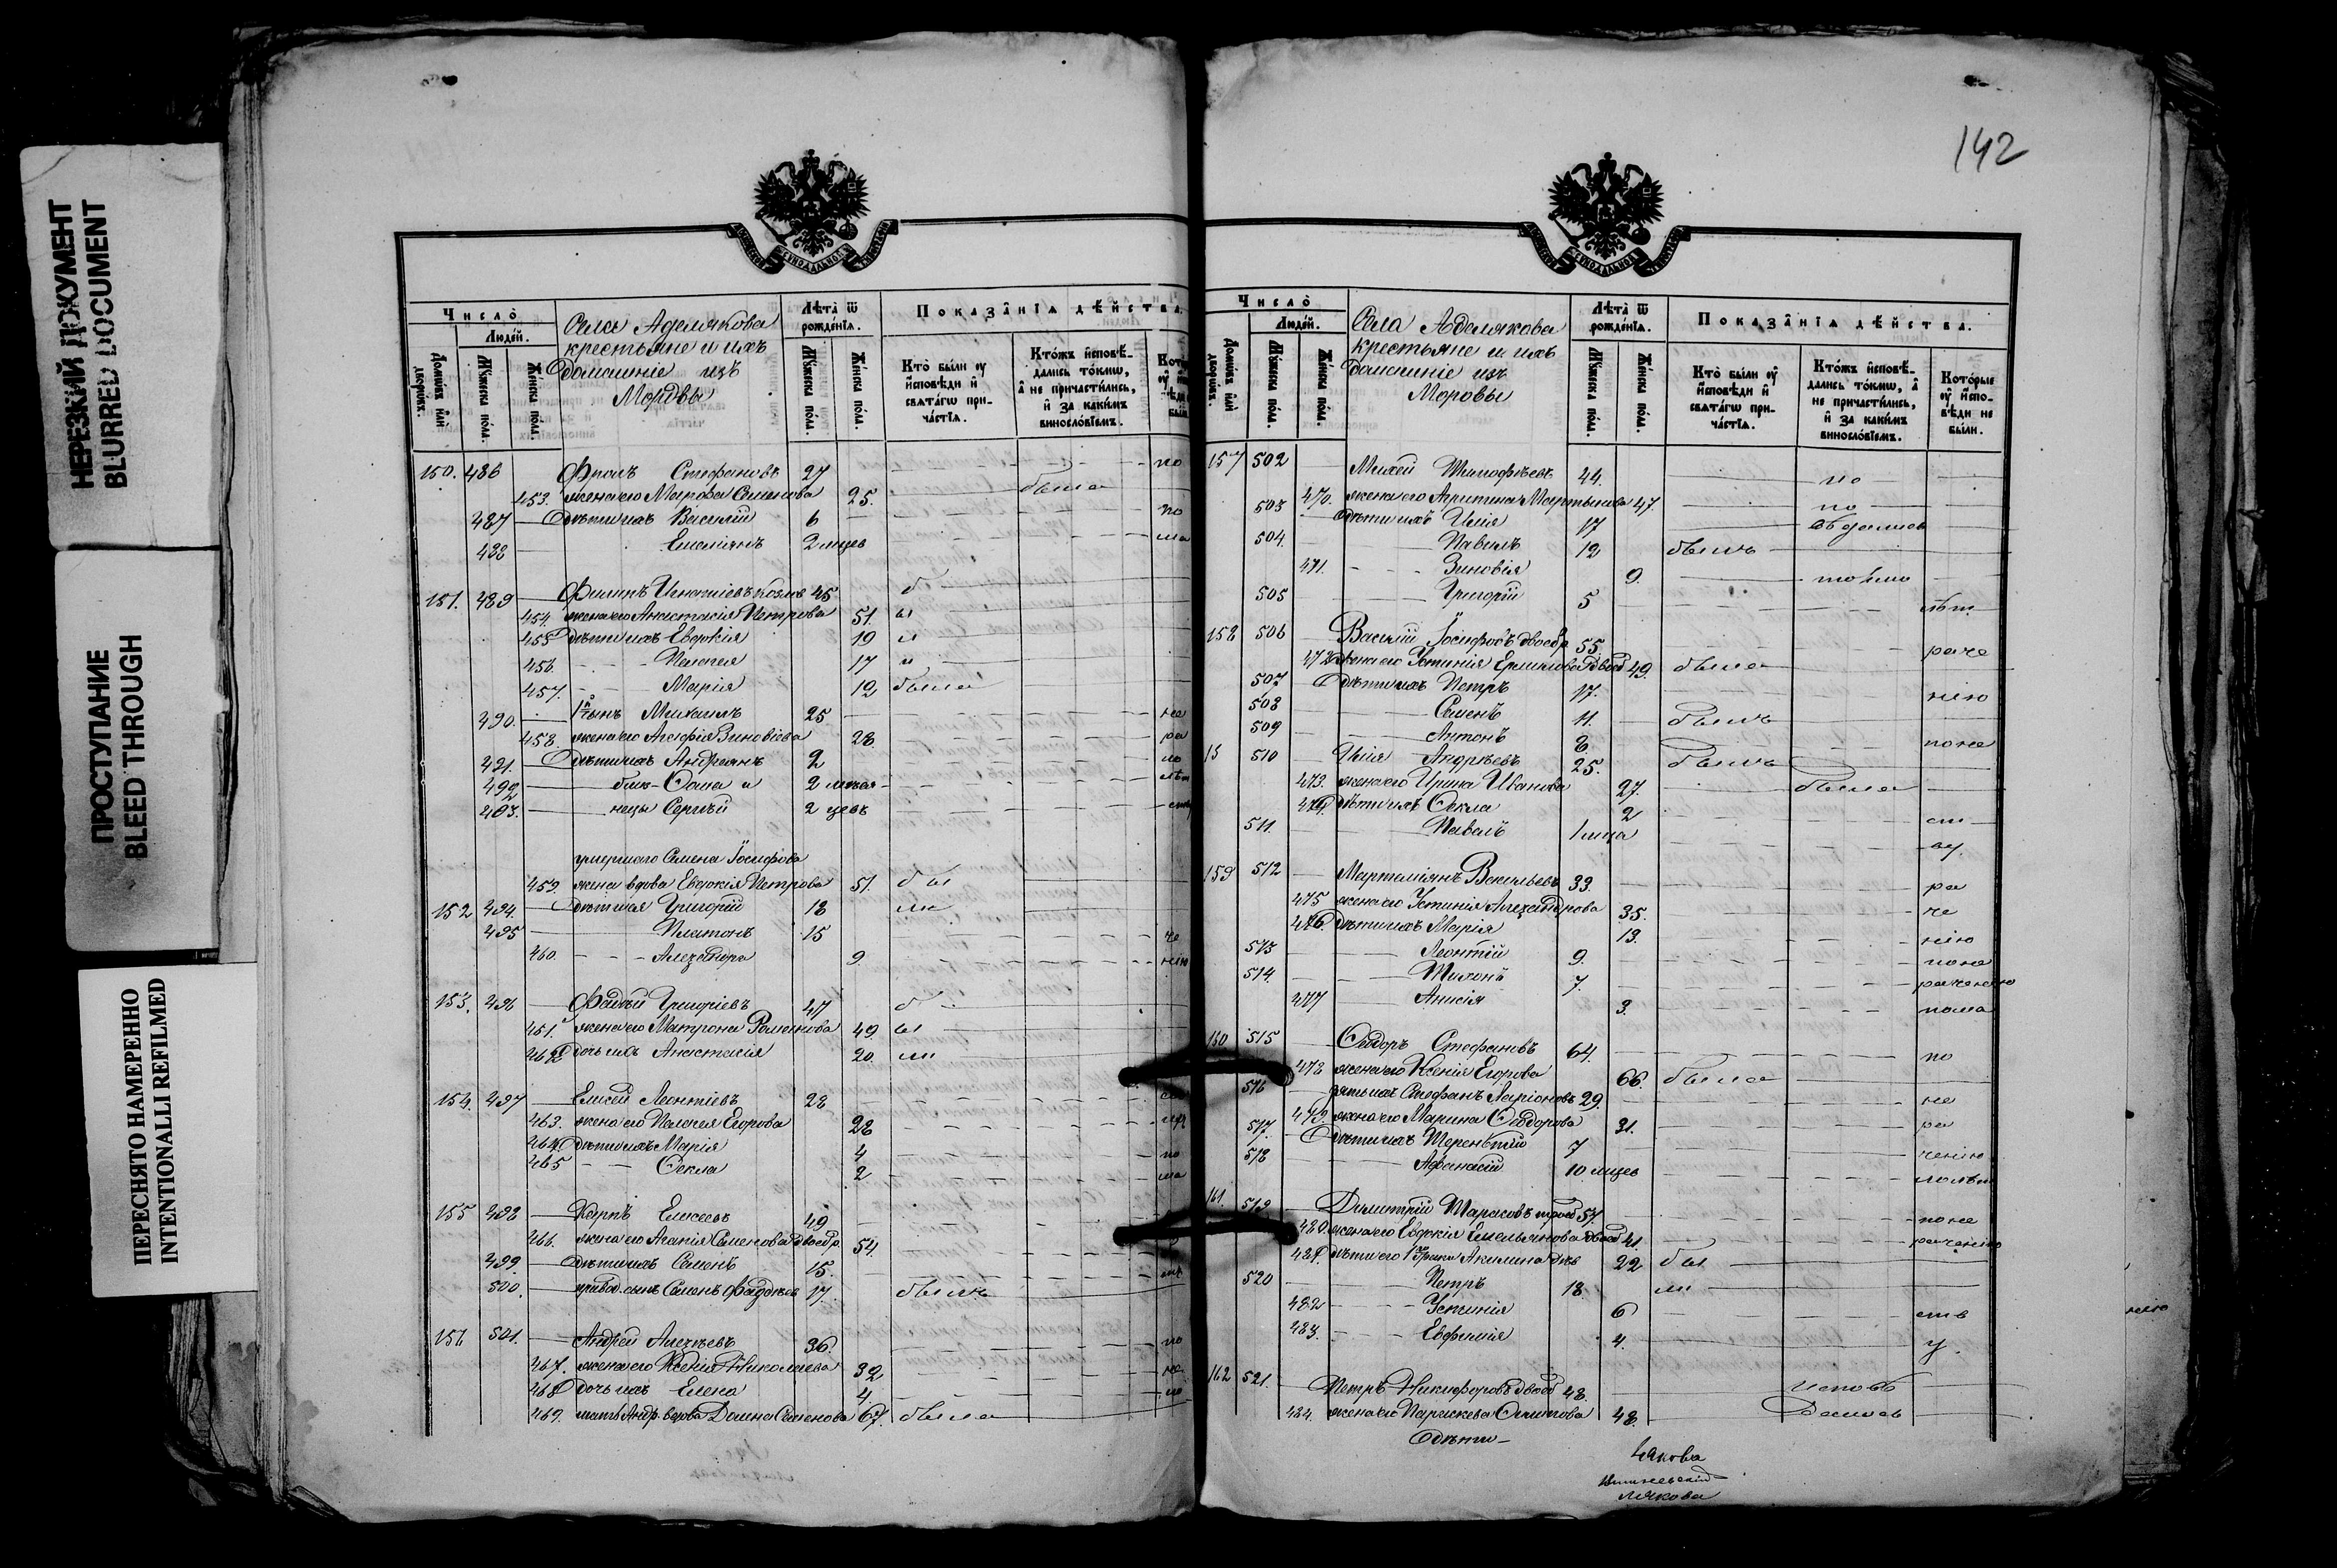 НЕРЕЗКИЙ ДОКУМЕНТ
BLURRED DOCUMENT
ПРОСТУПАНИЕ
BLEED THROUGH
ПЕРЕСНЯТО НАМЕРЕННО
INTENTIONALLI REFILMED
Число
Людей.
Домовъ или дворовъ.
Мужеска пола.
Женска пола.
Села Аделякова
крестьяне и ихъ
домашніе изъ
Мордвы
Лѣта ѿ рожденїя.
Мужеска пола.
Женска пола.
Показанїѧ дѣйства
Кто были оу исповѣди и свѧтагѡ причастїѧ.
Ктожъ исповѣдались токмѡ, а не причастились, и за какимъ винословїемъ.
150. 486 Фролъ Стефановъ 27 по
453. жена его Марфа Семенова 25. была
487 дѣти ихъ Василій 6 по
488 Емеліянъ 2 мцев ма
151. 489 Филипъ Игнатіевъ 45 б
454. жена его Анастасія Петрова 51. ы
455 дѣти ихъ Евдокія 19 л
456 Пелагея 17 и
457. Марія 12 была
490. 1й сынъ Михаилъ 25 не
458. жена его Агафія Зиновіева 28 ра
491. дѣти ихъ Андреянъ 2 по
492 близ- Фома и 2 мѣся-
493. нецы Сергѣй 2 цевъ
умершаго Семена Іосифова
459. жена вдова Евдокія Петрова 51. бы
152 494. дѣти ея Григорій 18 ли
495 Платонъ 15 че
460. Александра 9. нію
153. 496 Фадѣй Григоріевъ 47 б
461. жена его Матрона Романова 49. ы
462 дочь ихъ Анастасія 20. ли
154. 497 Елисей Леонтіевъ 28
463. жена его Пелагея Егорова 28
464 дѣти ихъ Марія 4 по
465 Ѳекла 2 ма
155 498 Карпъ Елисеевъ 49
466. жена его Агапія Семенова двоебр. 54.
499. дѣти ихъ Семенъ 15.
500. привод. сынъ Семенъ Фаддѣев 17. былъ
156 501. Андрей Алексѣевъ 36. по
467. жена его Ксенія Николаева 32 не
468 дочь ихъ Елена 4
469. мать Андр. вдова Домна Семенова 67. была
142
Число
Людей.
Домовъ или дворовъ.
Мужеска пола.
Женска пола.
Села Аделякова
крестьяне и ихъ
домашніе изъ
Моровы
Лѣта ѿ рожденїя.
Мужеска пола.
Женска пола.
Показанїѧ дѣйства.
Кто были оу исповѣди и свѧтагѡ причастїѧ.
Ктожъ исповѣдались токмѡ, а не причастились, и за какимъ винословїемъ.
Которые оу исповѣди не были.
157 502 Михей Тимофѣевъ 44. по
470. жена его Агрипина Мартынова 47. по
503 дѣти ихъ Илія 17
504. Павелъ 12 былъ
471. Зиновія 9. токмо
505 Григорій 5 лѣт
158 506 Василій Іосифовъ двоебр. 55. раче
472 жена его Устинія Ермилова двоеб 49. была
507 дѣти ихъ Петръ 17. нію
508 Семенъ 11. былъ
509 Антонъ 8 по не
15 510 Илія Андрѣевъ 25. былъ
473. жена его Ирина Иванова 27. была
474. дѣти ихъ Ѳекла 2 ст
511. Павелъ 1 мца ву.
159 512 Мартеміянъ Васильевъ 33. ра
475 жена его Устинія Александрова 35. че
476. дѣти ихъ Марія 13. нію
513 Леонтій 9. по не
514. Тихонъ 7. раченію
477 Анисія 3. пома
160 515 Ѳеодоръ Стефановъ 64. по
478 жена его Ксенія Егорова 66. была
516 зять ихъ Стефанъ Ларіоновъ 29. не
479. жена его Марина Ѳеодорова 31. ра
517. дѣти ихъ Терентій 7 ченію
518 Афанасій 10 мцев
161. 519 Димитрій Тарасовъ троеб 57. по не
480. жена его Евдокія Емельянова двоеб 41. раченію
481. дѣти его 1го брака Акилина двв 22 бы
520 Петръ 18. ли
482 Устинія 6 ств
483. Евфимія 4. у.
162 521. Петръ Никифоровъ двоеб 48. исповѣ
484. жена его Параскева Осипова 48. дались
дѣти